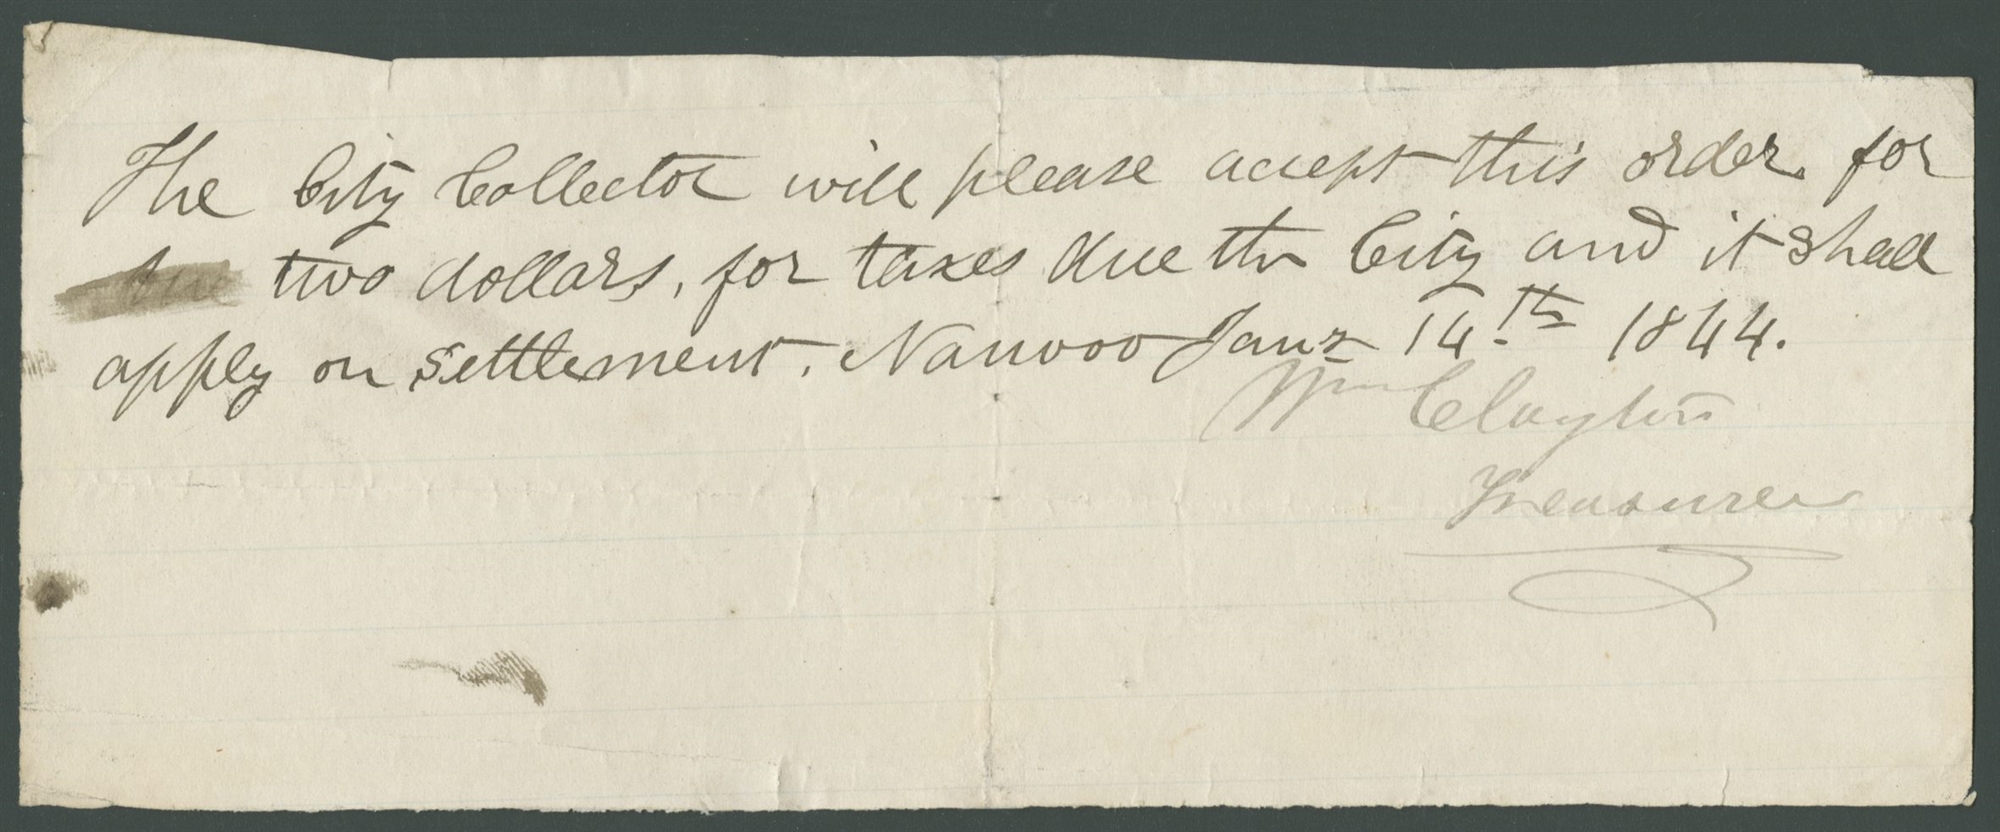 The City Collector will please accept this order for
two dollars, for taxes due the City and it shall
apply on settlement. Nauvoo Jany 14th 1844.
Wm Clayton
Treasurer